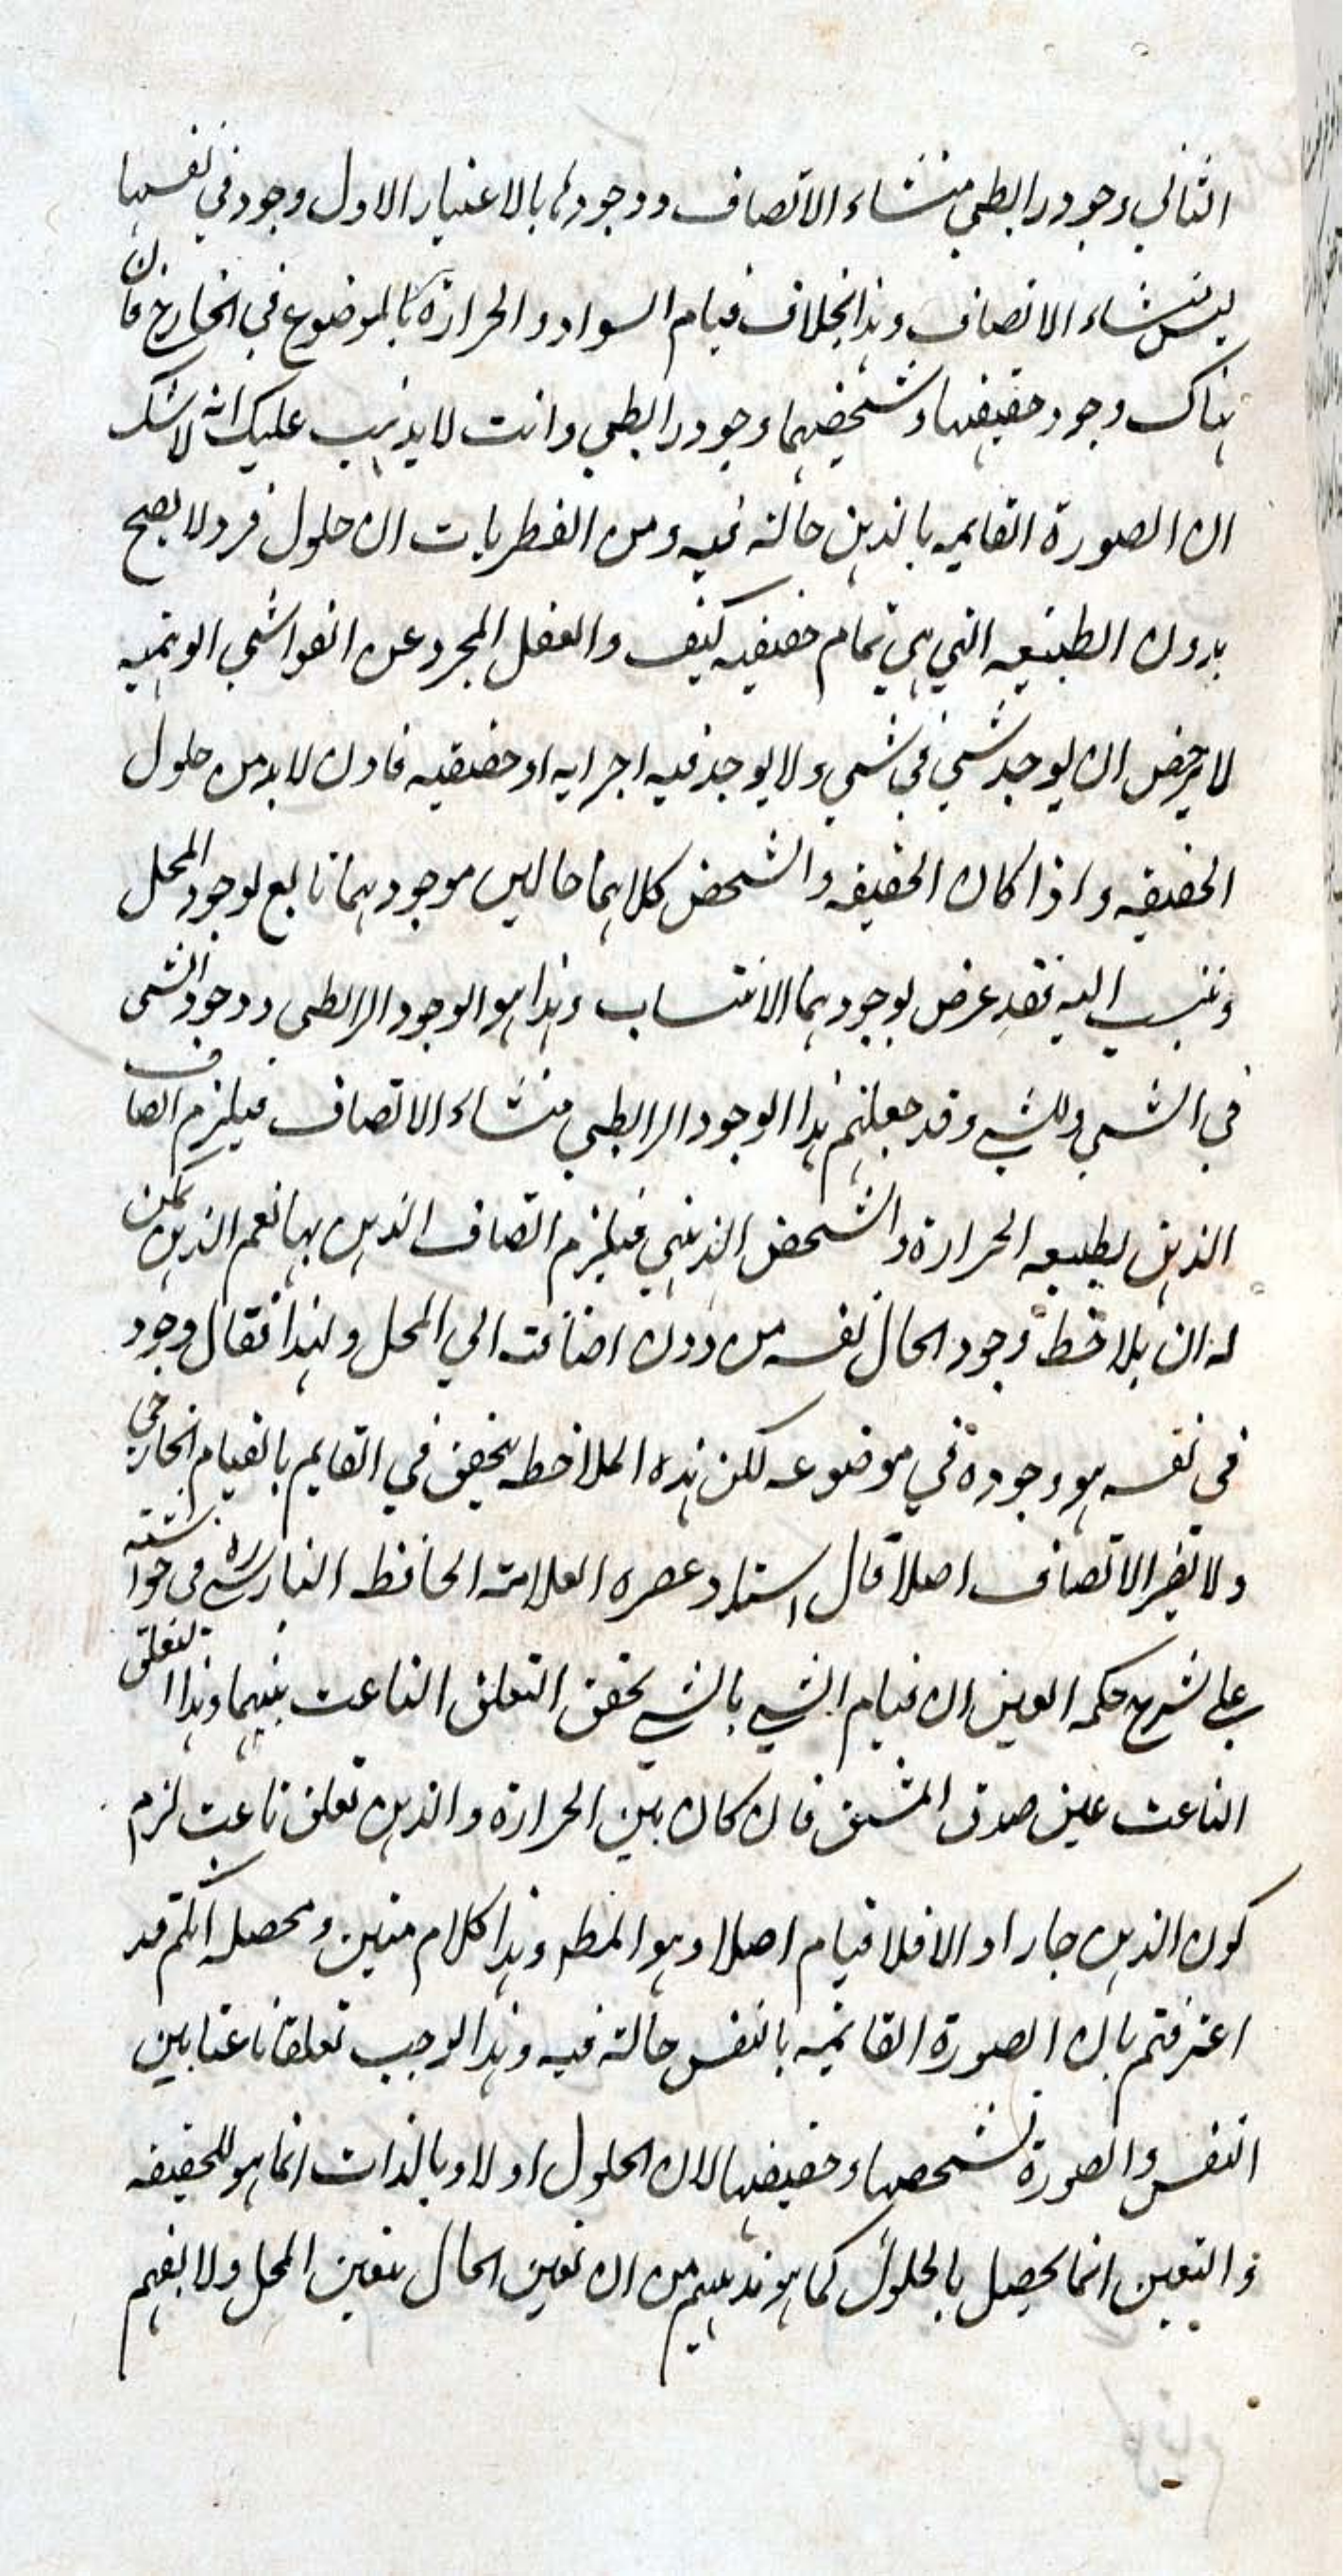 الثاني وجود رابطي منشاء الاتصاف ووجودها بالاعتبار الاول وجود في نفسها
ليس منشاء الاتصاف وهذا بخلاف قيام السواد والحرارة بالموضوع في الخارج فان
هناك وجود حقيقتهما وشخصيهما وجود رابطي وانت لا يذهب عليك انه لا شك
ان الصورة القايمه بالذهن حالة فيه ومن الفطريات ان حلول فرد لا يصح
بدون الطبيعه التي هي تمام حقيقيه كيف والعقل المجرد عن الغواشي الوهميه
لا يرخص ان يوجد شي في شي ولا يوجد فيه اجزايه او حقيقيه فاذن لا بد من حلول
الحقيقه واذا كان الحقيقه والشخص كلاهما حالين موجود هما تابع لوجود المحل
وينسب اليه فقد عرض لوجودهما الانتساب وهذا هو الوجود الرابطي ووجود الشي
في الشي وللشي وقد جعلتم هذا الوجود الرابطي منشاء الاتصاف فيلزم اتصاف
الذهن بطبيعه الحرارة والشخص الذهني فيلزم اتصاف الذهن بها نعم الذهن يمكن
له ان يلاحظ وجود الحال نفسه من دون اضافته الي المحل ولهذا يقال وجود
في نفسه هو وجوده في موضوعه لكن هذه الملاحظه يتحقق في القايم بالقيام الخارجي
ولا تضر الاتصاف اصلا قال استاد عصره العلامة الحافظ البنارسي ره في حواشيه
علي شرح حكمه العين ان قيام الشي بالشي تحقق التعلق الناعت بينهما وهذا التعلق
الناعت عين صدق المشتق فان كان بين الحرارة والذهن تعلق ناعت لزم
كون الذهن حارا والا فلا قيام اصلا وهو المط وهذا كلام متين ومحصله انكم قد
اعترفتم بان الصورة القائميه بالنفس حالة فيه وهذا يوجب تعلقا ناعتا بين
النفس والصورة تشخصها وحقيقتها لان الحلول اولا وبالذات انما هو للحقيقه
والتعين انما يحصل بالحلول كما هو مذهبهم من ان تعين الحال بتعين المحل ولا يفهم